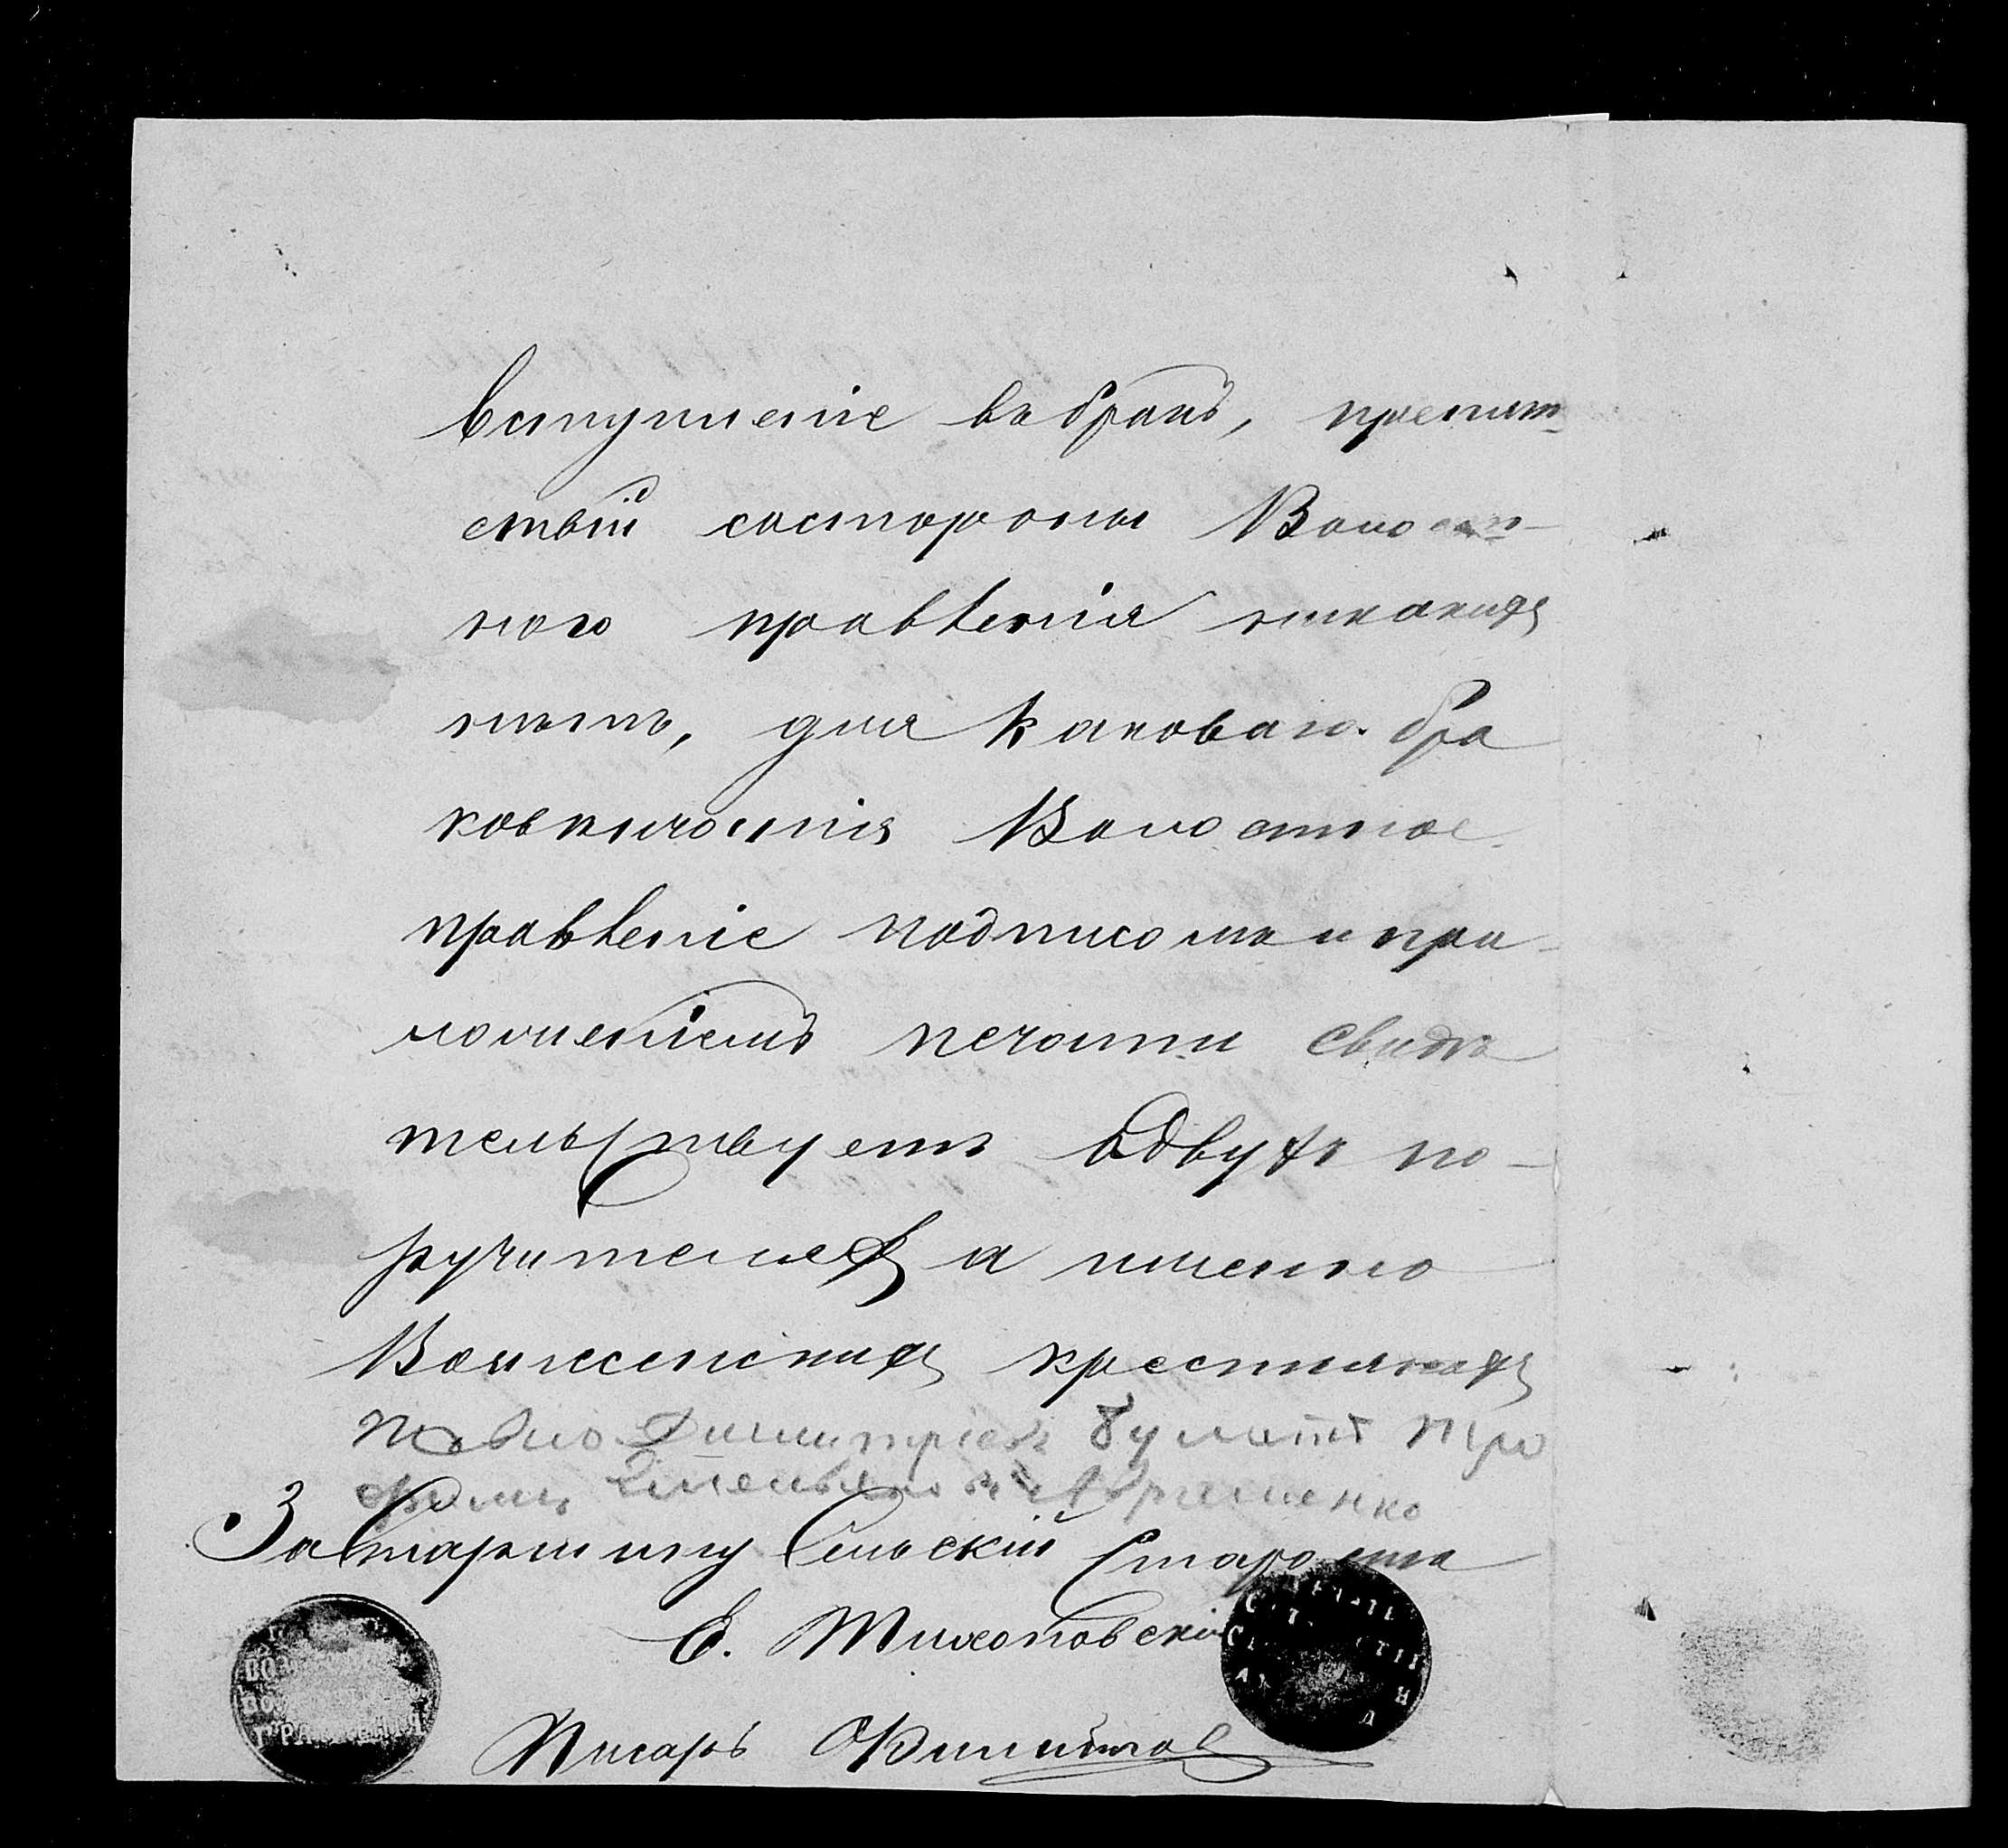 вступленіе въ бракъ, препят-
ствій состороны Волост-
ного правленія никакихъ
нѣтъ, для каковаго бра
ковѣнчанія Волостное
правленіе подписомъ и при-
ложеніемъ печати свидѣ
тельствуетъ одвухъ по-
ручителей а именно
крестьянахъ
Павло Димитріевъ Тро
фимъ Емельяновъ
За Старшину Сельскій Староста
Е. Тихоновскій
Писарь